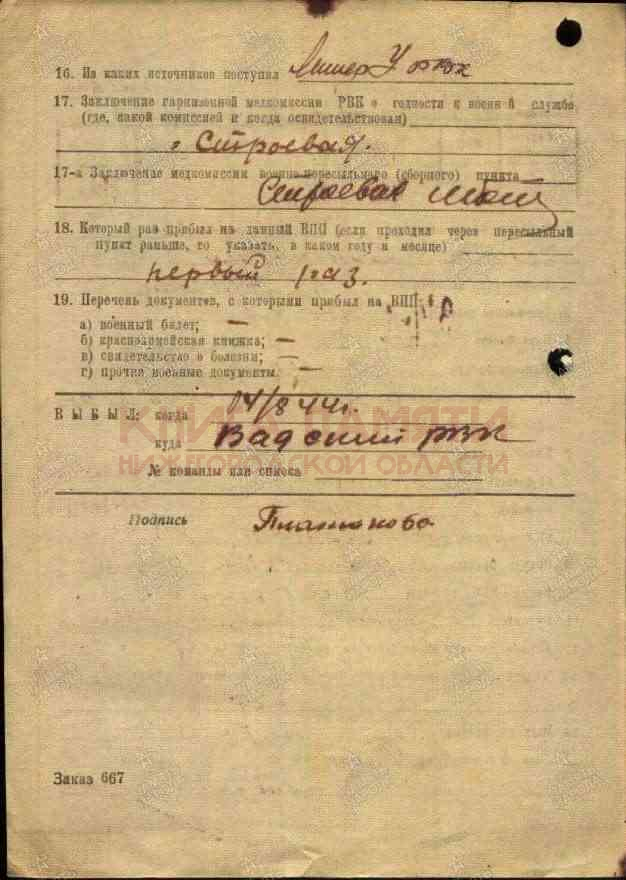 16. Из каких источников поступил
17. Заключение гарнизонной медкомиссии РВК о годности к военной службе
(где, какой комиссией и когда освидетельствован)
Строевая.
17-а Заключение медкомиссии военно-пересыльного (сборного) пункта
Строевая
18. Который раз прибыл на данный ВПП (если проходил через пересыльный
пункт раньше, то указать, в каком году и месяце)
первый раз.
19. Перечень документов, с которыми прибыл на ВПП:
а) военный билет; —
б) красноармейская книжка; —
в) свидетельство о болезни; —
г) прочие военные документы. —
ВЫБЫЛ: когда 14/8 44г.
КНИГА ПАМЯТИ
куда Вадский РВК
НИЖЕГОРОДСКОЙ ОБЛАСТИ
№ команды или списка
Подпись
Заказ 667